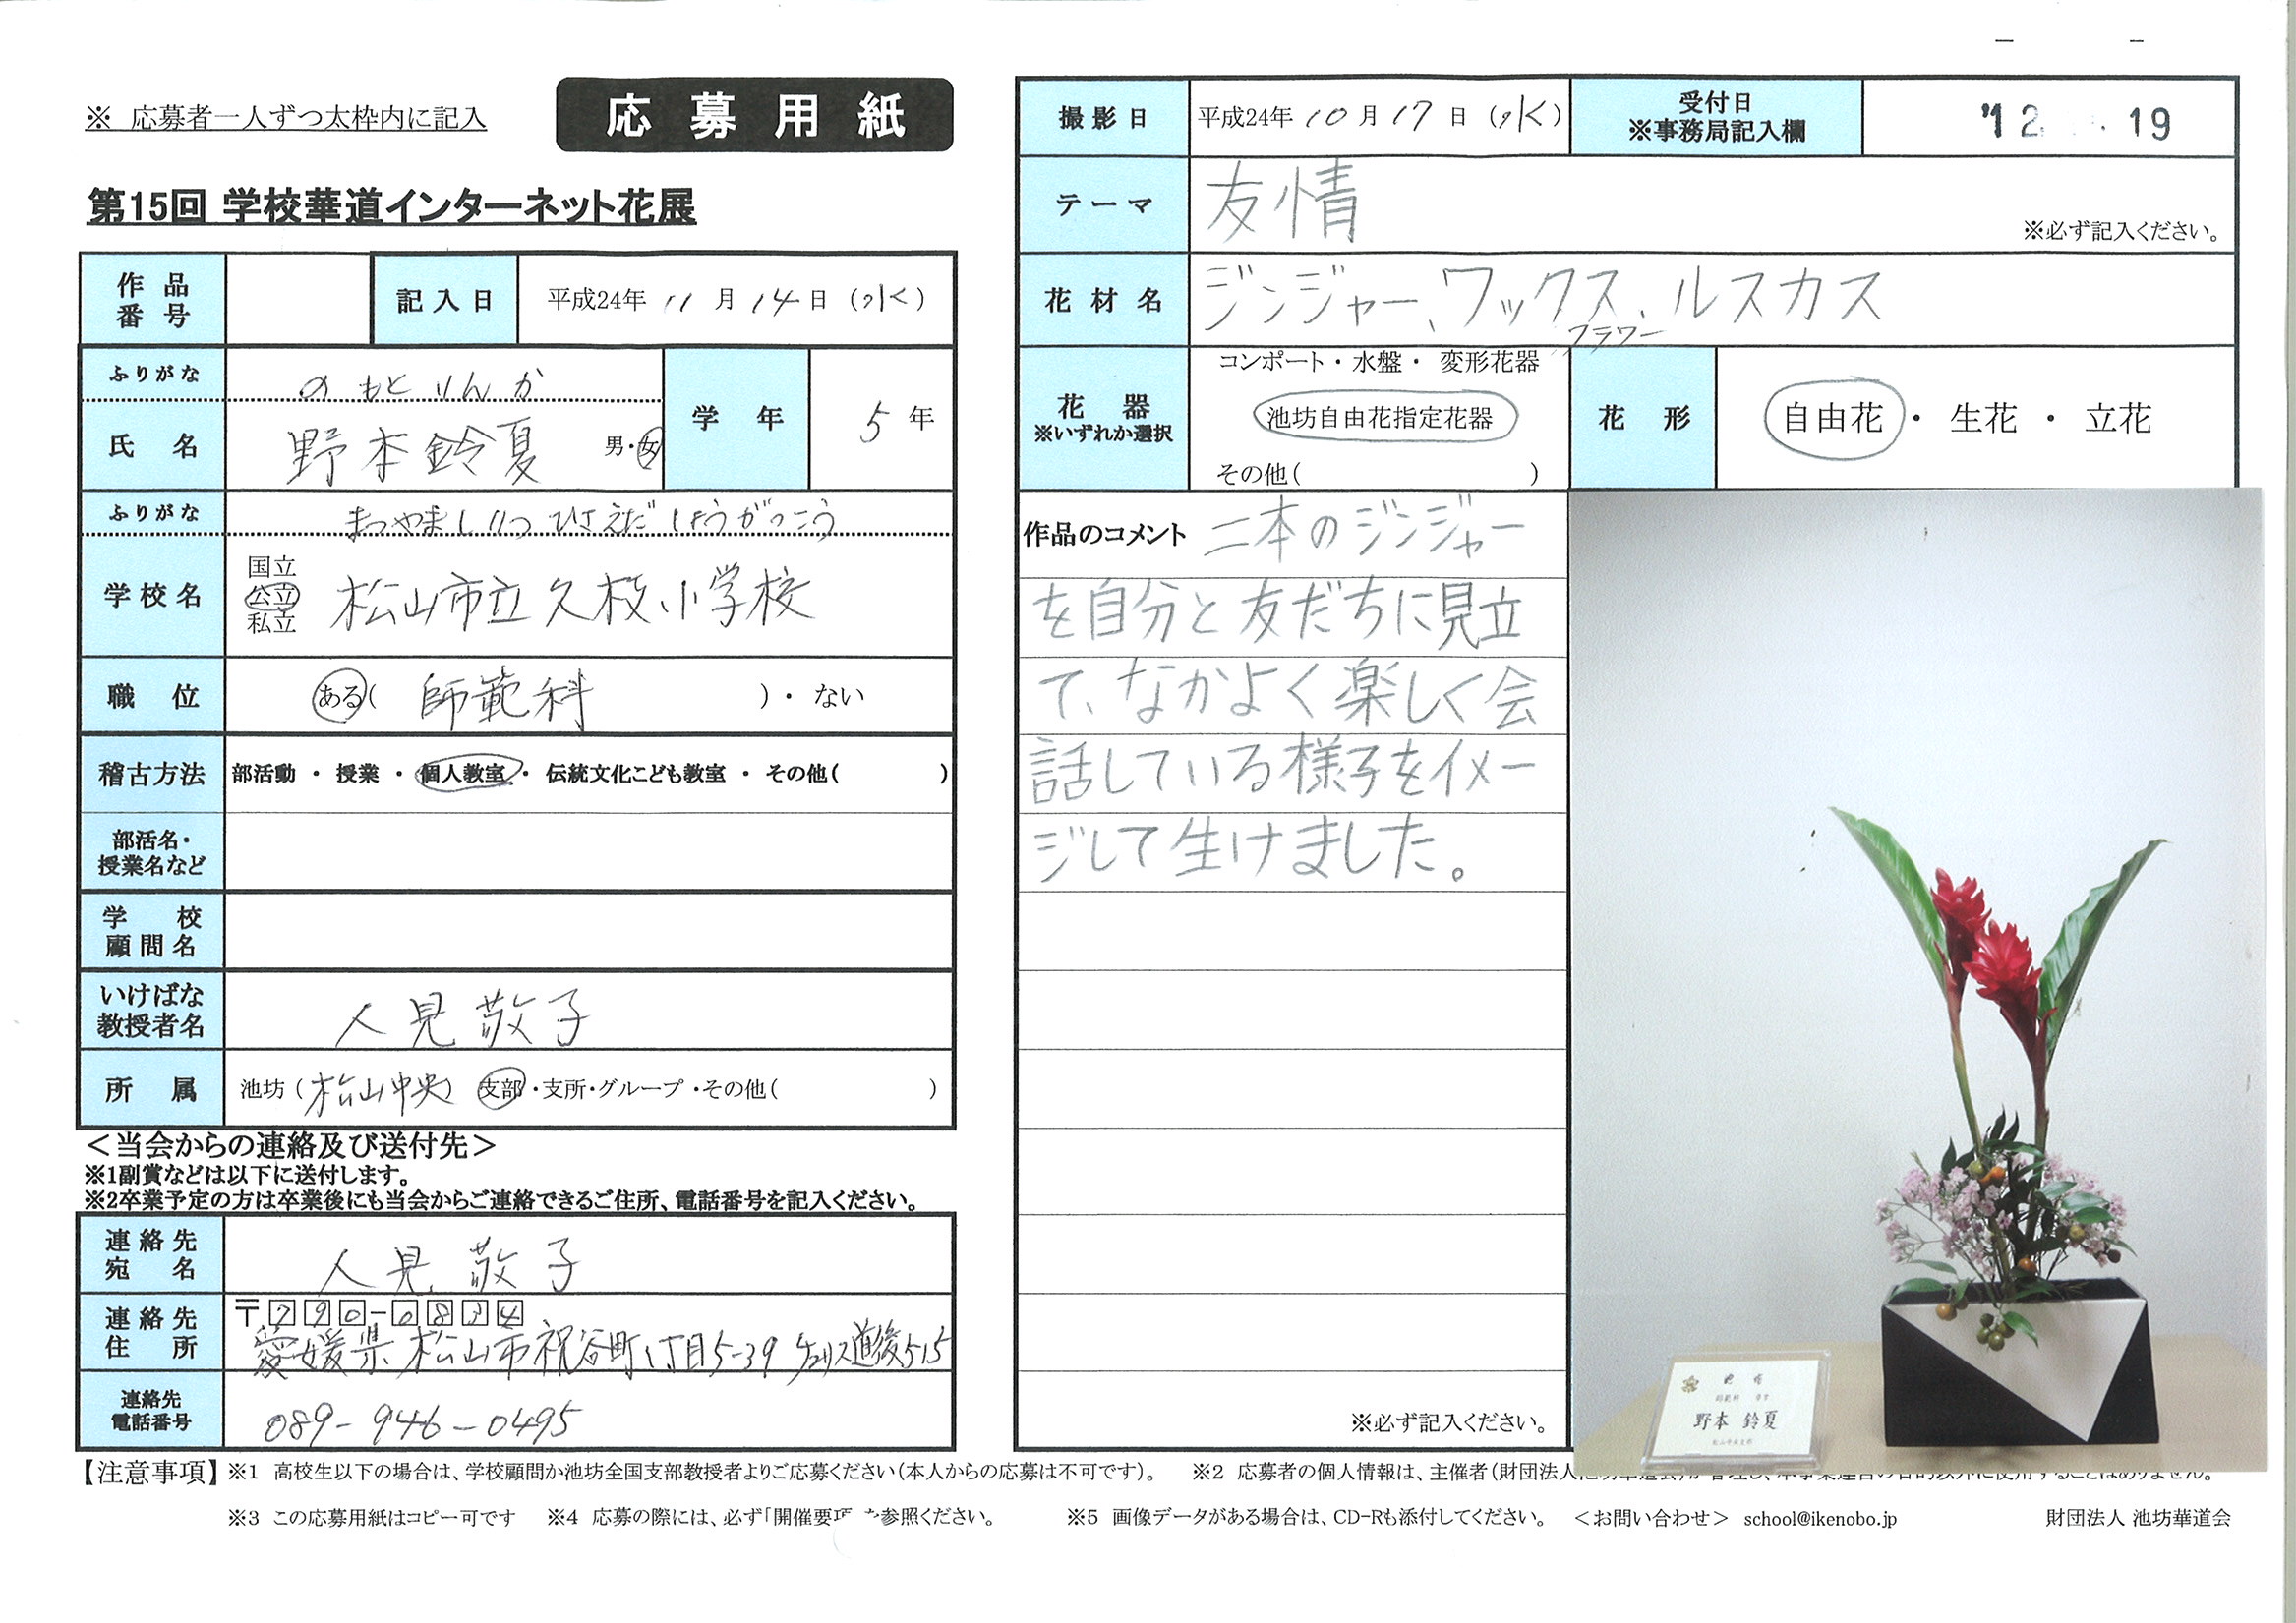 ※ 応募者一人ずつ太枠内に記入
応募用紙
第15回 学校華道インターネット花展
作品番号
記入日 平成24年 11月 14日 (水)
ふりがな のもと りんか
氏名 野本鈴夏 男・女
学年 5年
ふりがな まつやましりつ ひさえだ しょうがっこう
学校名 国立 公立 私立 松山市立久枝小学校
職位 ある( 師範科 )・ ない
稽古方法 部活動 ・ 授業 ・ 個人教室 ・ 伝統文化こども教室 ・ その他( )
部活名・授業名など
学校顧問名
いけばな教授者名 人見 敬子
所属 池坊 (松山中央) 支部・支所・グループ・その他( )
<当会からの連絡及び送付先>
※1副賞などは以下に送付します。
※2卒業予定の方は卒業後にも当会からご連絡できるご住所、電話番号を記入ください。
連絡先宛名 人見 敬子
連絡先住所 〒790-0834
愛媛県松山市祝谷町1丁目5-39 道後515
連絡先電話番号 089-946-0495
撮影日 平成24年 10月 17日 (水)
受付日
※事務局記入欄
'12 19
テーマ 友情
※必ず記入ください。
花材名 ジンジャー、ワックスフラワー、ルスカス
花器 ※いずれか選択
コンポート・水盤・変形花器
池坊自由花指定花器
その他( )
花形 自由花 ・ 生花 ・ 立花
作品のコメント 二本のジンジャー
を自分と友だちに見立
て、なかよく楽しく会
話している様子をイメー
ジして生けました。
※必ず記入ください。
師範科
野本 鈴夏
松山中央支部
【注意事項】 ※1 高校生以下の場合は、学校顧問か池坊全国支部教授者よりご応募ください(本人からの応募は不可です)。 ※2 応募者の個人情報は、主催者(財団法人
※3 この応募用紙はコピー可です ※4 応募の際には、必ず「開催要項 参照ください。 ※5 画像データがある場合は、CD-Rも添付してください。 <お問い合わせ> school@ikenobo.jp 財団法人 池坊華道会